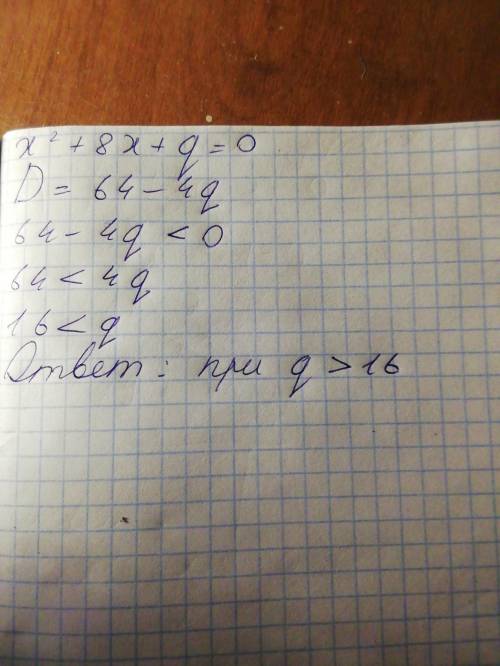 x² + 8x + q = 0
D = 64 - 4q
64 - 4q < 0
64 < 4q
16 < q
Ответ: при q > 16